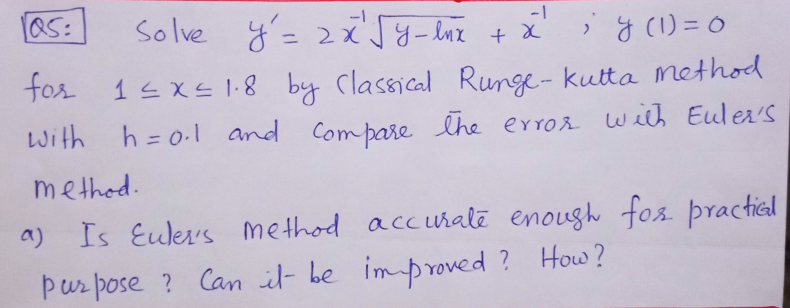 Q5: Solve y' = 2x⁻¹√(y-lnx) + x⁻¹ ; y(1)=0
for 1 ≤ x ≤ 1.8 by Classical Runge-Kutta method
with h=0.1 and Compare the error with Euler's
method.
a) Is Euler's method accurate enough for practical
purpose ? Can it be improved ? How?